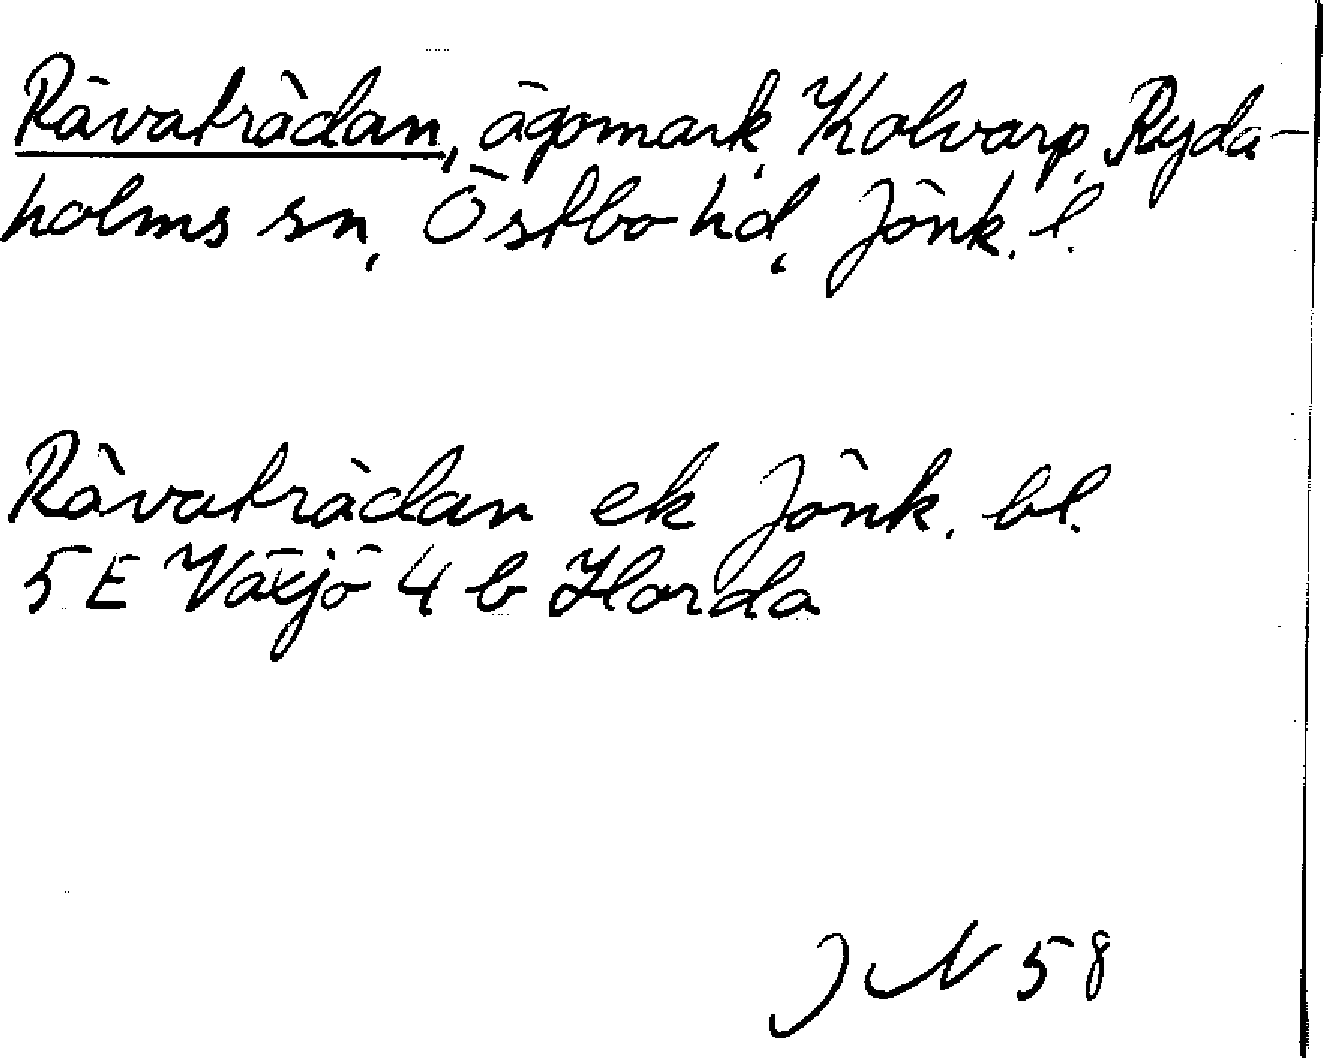 Rävaträdan, ägomark, Kolvarp, Ryda-
holms sn, Östbo hd, Jönk. l.
Rävaträdan ek Jönk. bl.
5 E Växjö 4 b Horda
J N 58